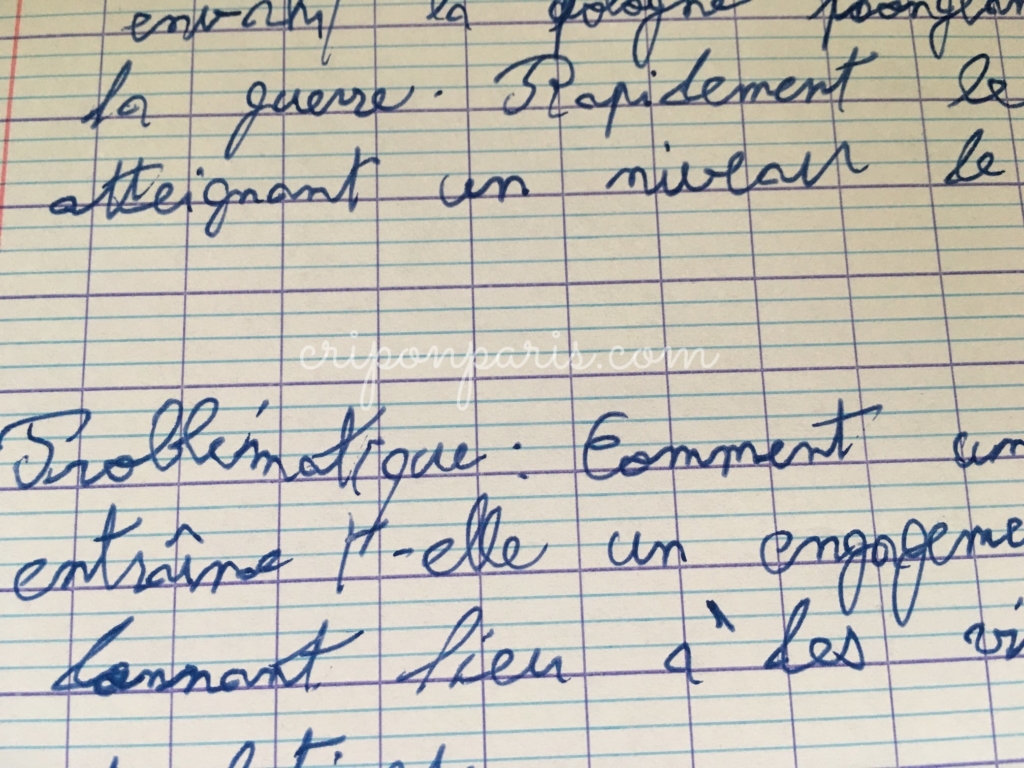 envahi la Pologne
la guerre. Rapidement le
atteignant un niveau de
criponparis.com
Problématique : Comment un
entraîne t-elle un engageme
donnant lieu à des vi